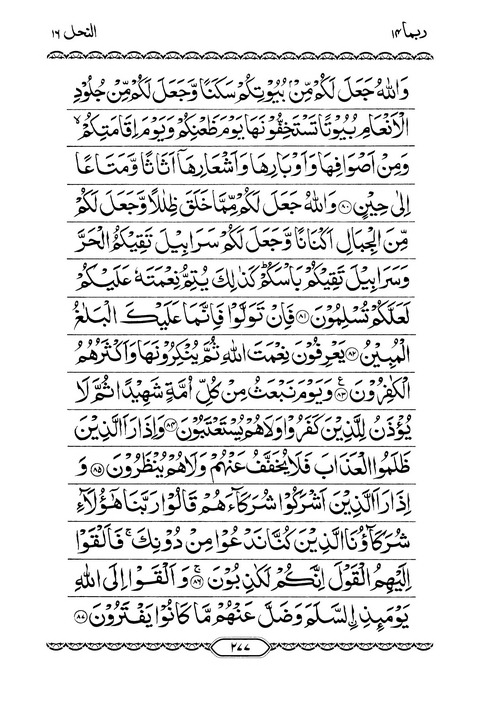 ربما ١٤
النحل ١٦
وَاللّٰهُ جَعَلَ لَكُمْ مِّنْۢ بُيُوْتِكُمْ سَكَنًا وَّجَعَلَ لَكُمْ مِّنْ جُلُوْدِ
الْاَنْعَامِ بُيُوْتًا تَسْتَخِفُّوْنَهَا يَوْمَ ظَعْنِكُمْ وَيَوْمَ اِقَامَتِكُمْ ۙ
وَمِنْ اَصْوَافِهَا وَاَوْبَارِهَا وَاَشْعَارِهَاۤ اَثَاثًا وَّمَتَاعًا
اِلٰى حِيْنٍ ﴿٨٠﴾ وَاللّٰهُ جَعَلَ لَكُمْ مِّمَّا خَلَقَ ظِلٰلًا وَّجَعَلَ لَكُمْ
مِّنَ الْجِبَالِ اَكْنَانًا وَّجَعَلَ لَكُمْ سَرَابِيْلَ تَقِيْكُمُ الْحَرَّ
وَسَرَابِيْلَ تَقِيْكُمْ بَاْسَكُمْ ؕ كَذٰلِكَ يُتِمُّ نِعْمَتَهٗ عَلَيْكُمْ
لَعَلَّكُمْ تُسْلِمُوْنَ ﴿٨١﴾ فَاِنْ تَوَلَّوْا فَاِنَّمَا عَلَيْكَ الْبَلٰغُ
الْمُبِيْنُ ﴿٨٢﴾ يَعْرِفُوْنَ نِعْمَتَ اللّٰهِ ثُمَّ يُنْكِرُوْنَهَا وَاَكْثَرُهُمُ
الْكٰفِرُوْنَ ﴿٨٣﴾ ع وَيَوْمَ نَبْعَثُ مِنْ كُلِّ اُمَّةٍ شَهِيْدًا ثُمَّ لَا
يُؤْذَنُ لِلَّذِيْنَ كَفَرُوْا وَلَا هُمْ يُسْتَعْتَبُوْنَ ﴿٨٤﴾ وَاِذَا رَاَ الَّذِيْنَ
ظَلَمُوا الْعَذَابَ فَلَا يُخَفَّفُ عَنْهُمْ وَلَا هُمْ يُنْظَرُوْنَ ﴿٨٥﴾ وَ
اِذَا رَاَ الَّذِيْنَ اَشْرَكُوْا شُرَكَآءَهُمْ قَالُوْا رَبَّنَا هٰۤؤُلَآءِ
شُرَكَآؤُنَا الَّذِيْنَ كُنَّا نَدْعُوْا مِنْ دُوْنِكَ ۚ فَاَلْقَوْا
اِلَيْهِمُ الْقَوْلَ اِنَّكُمْ لَكٰذِبُوْنَ ﴿٨٦﴾ ۚ وَاَلْقَوْا اِلَى اللّٰهِ
يَوْمَئِذِ اۨلسَّلَمَ وَضَلَّ عَنْهُمْ مَّا كَانُوْا يَفْتَرُوْنَ ﴿٨٧﴾
٢٧٧